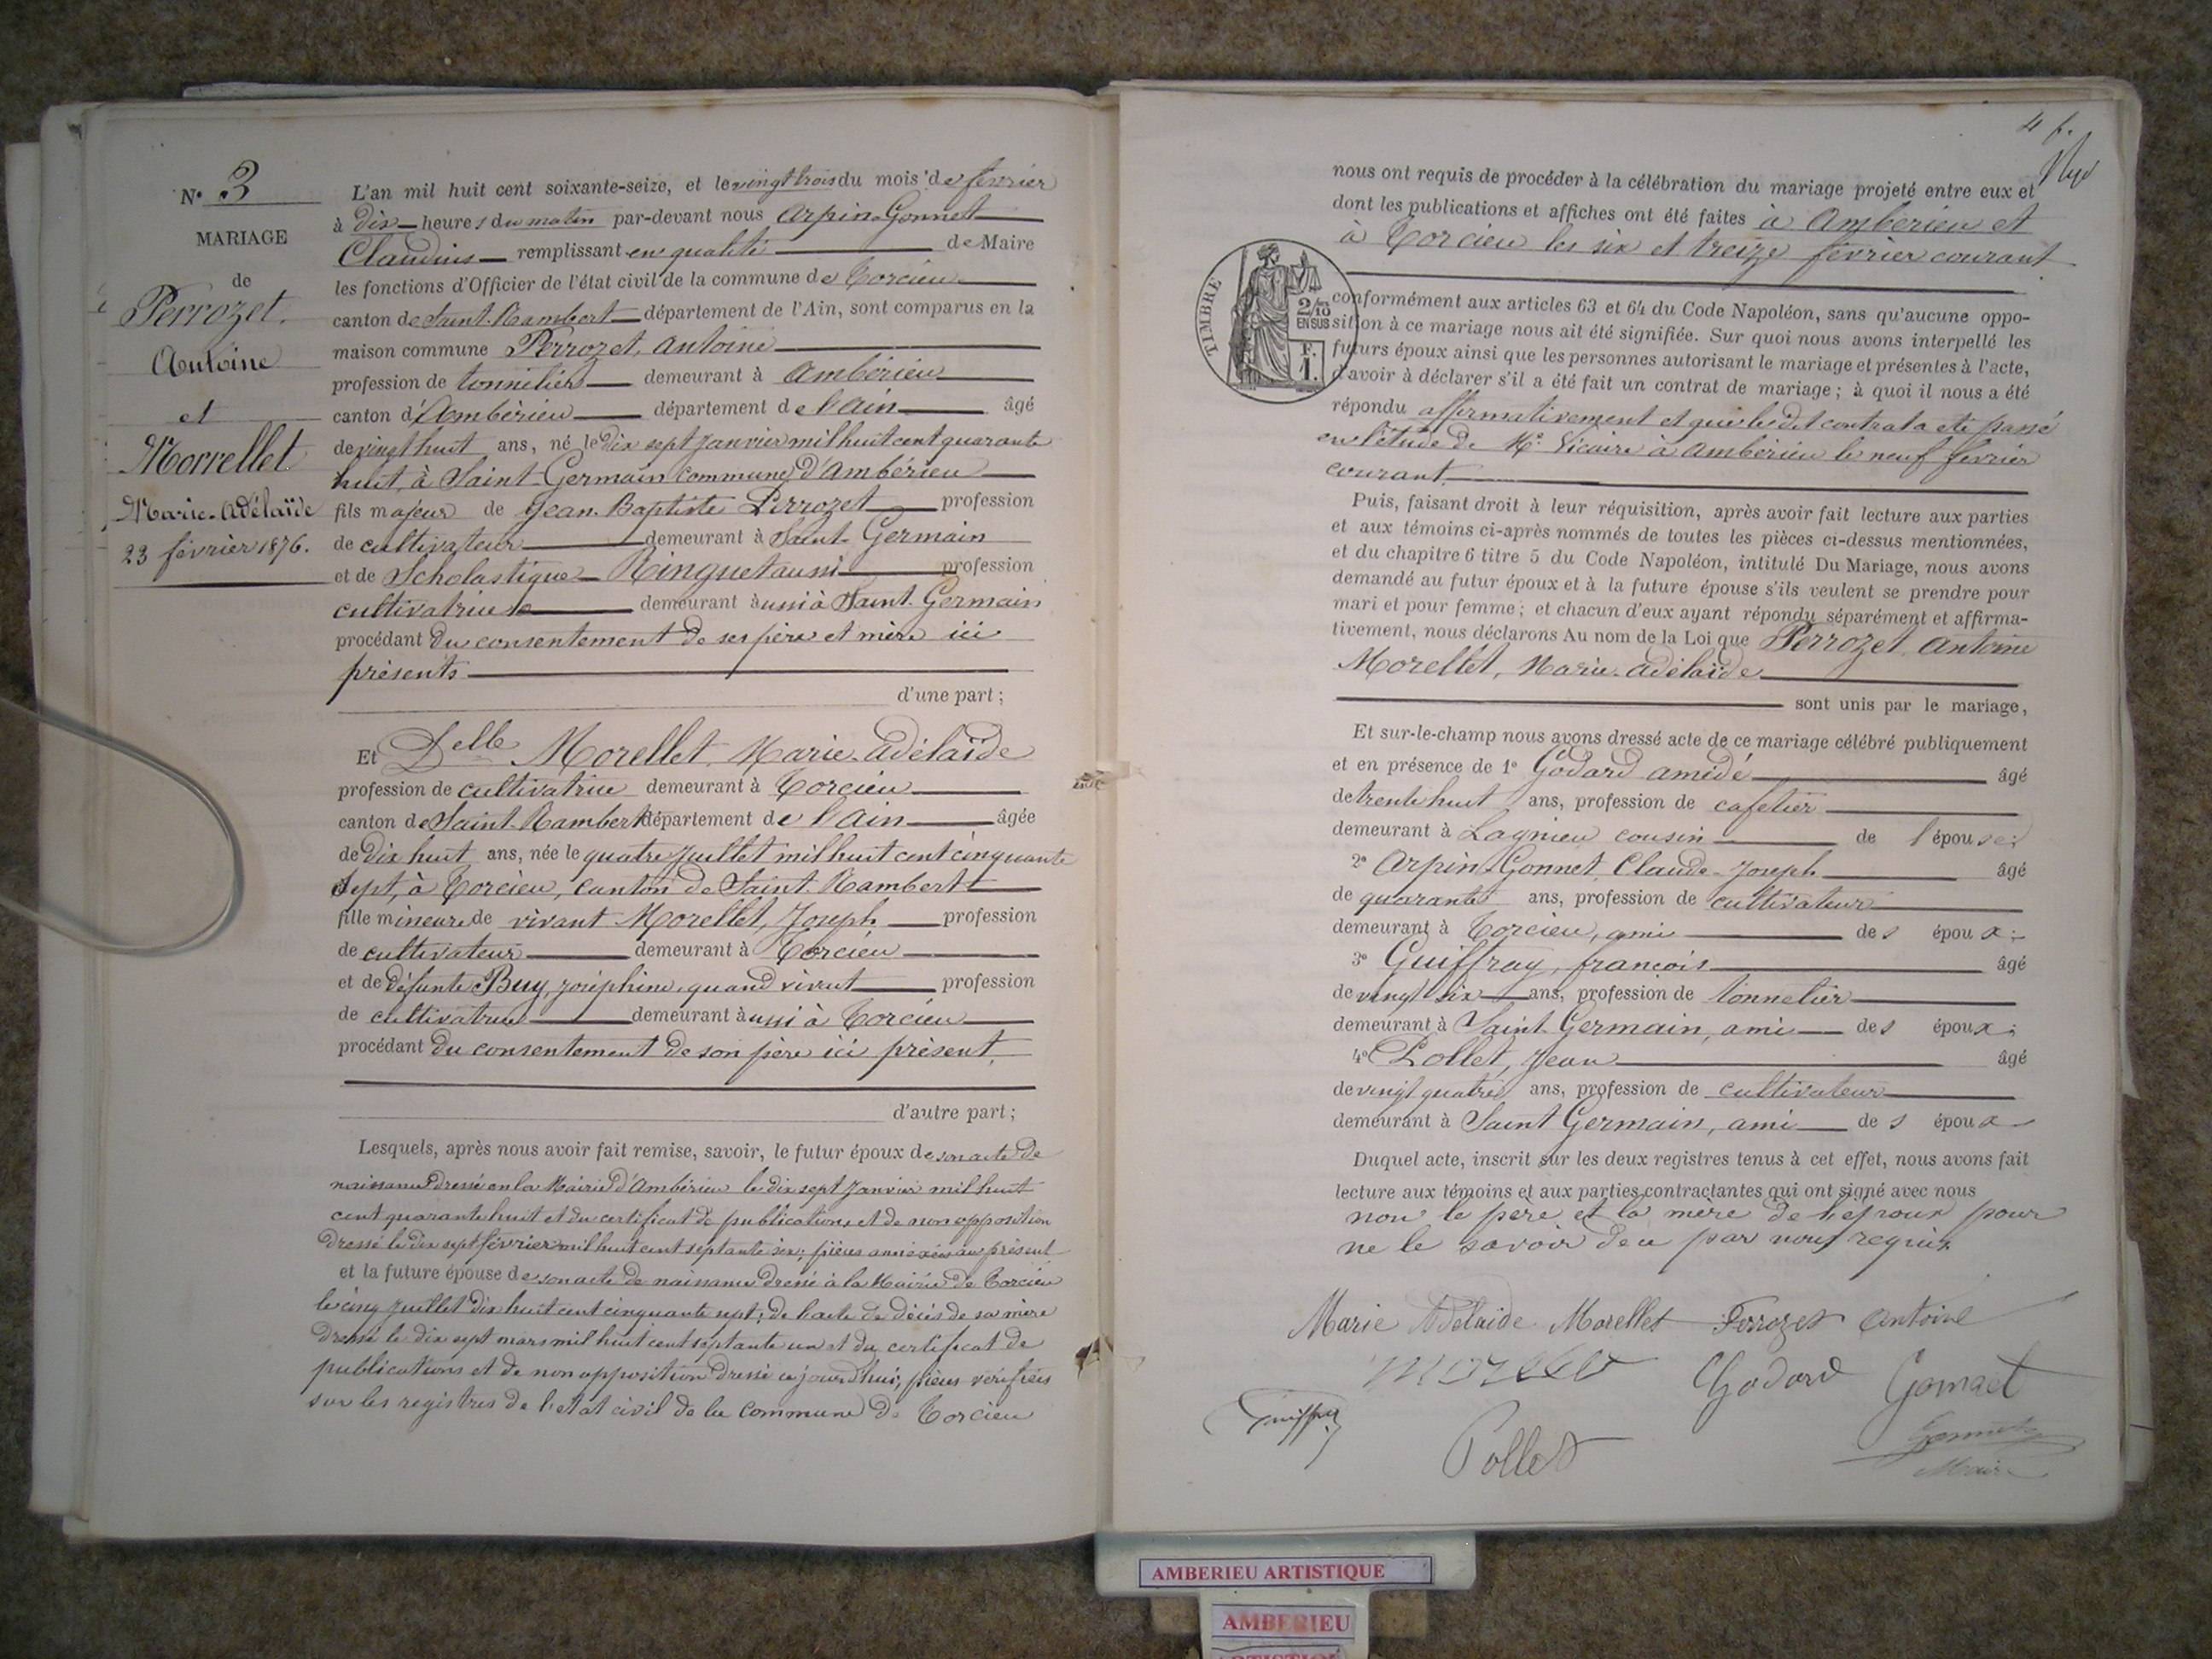 N° 3
MARIAGE
de
Perrozet
Antoine
et
Morrellet
Marie-Adélaïde
23 février 1876.
L'an mil huit cent soixante-seize, et le vingt trois du mois de février
à dix heures du matin par-devant nous Arpin-Gonnet
Claudius remplissant en qualité de Maire
les fonctions d'Officier de l'état civil de la commune de Torcieu
canton de Saint-Rambert département de l'Ain, sont comparus en la
maison commune Perrozet, Antoine
profession de tonnelier demeurant à Ambérieu
canton d'Ambérieu département de l'Ain âgé
de vingt huit ans, né le dix sept janvier mil huit cent quarante
huit, à Saint-Germain commune d'Ambérieu
fils majeur de Jean-Baptiste Perrozet profession
de cultivateur demeurant à Saint-Germain
et de Scholastique Ringuet aussi profession
cultivatrice demeurant aussi à Saint-Germain
procédant du consentement de ses père et mère ici
présents
d'une part;
Et Delle Morellet, Marie-Adélaïde
profession de cultivatrice demeurant à Torcieu
canton de Saint-Rambert département de l'Ain âgée
de dix huit ans, née le quatre Juillet mil huit cent cinquante
sept, à Torcieu, canton de Saint-Rambert
fille mineure de vivant Morellet, Joseph profession
de cultivateur demeurant à Torcieu
et de défunte Buy, Joséphine, quand vivait profession
de cultivatrice demeurant aussi à Torcieu
procédant du consentement de son père ici présent,
d'autre part;
Lesquels, après nous avoir fait remise, savoir, le futur époux de son acte de
naissance dressé en la Mairie d'Ambérieu le dix sept Janvier mil huit
cent quarante huit et du certificat de publications et de non opposition
dressé le dix sept février mil huit cent septante six; pièces annexées au présent
et la future épouse de son acte de naissance dressé à la Mairie de Torcieu
le cinq Juillet dix huit cent cinquante sept; de l'acte de décès de sa mère
dressé le dix sept mars mil huit cent septante un et du certificat de
publications et de non opposition dressé ce jourd'hui, pièces vérifiées
sur les registres de l'état civil de la commune de Torcieu
4 f.
nous ont requis de procéder à la célébration du mariage projeté entre eux et
dont les publications et affiches ont été faites à Ambérieu et
à Torcieu les six et treize février courant
TIMBRE
2/10
EN SUS
F.
1.
conformément aux articles 63 et 64 du Code Napoléon, sans qu'aucune oppo-
sition à ce mariage nous ait été signifiée. Sur quoi nous avons interpellé les
futurs époux ainsi que les personnes autorisant le mariage et présentes à l'acte,
d'avoir à déclarer s'il a été fait un contrat de mariage; à quoi il nous a été
répondu affirmativement et que le dit contrat a été passé
en l'étude de Me Vicaire à Ambérieu le neuf février
courant
Puis, faisant droit à leur réquisition, après avoir fait lecture aux parties
et aux témoins ci-après nommés de toutes les pièces ci-dessus mentionnées,
et du chapitre 6 titre 5 du Code Napoléon, intitulé Du Mariage, nous avons
demandé au futur époux et à la future épouse s'ils veulent se prendre pour
mari et pour femme; et chacun d'eux ayant répondu séparément et affirma-
tivement, nous déclarons Au nom de la Loi que Perrozet, Antoine
Morellet, Marie-Adélaïde
sont unis par le mariage,
Et sur-le-champ nous avons dressé acte de ce mariage célébré publiquement
et en présence de 1° Godard Amédé âgé
de trente huit ans, profession de cafetier
demeurant à Lagnieu cousin de l'épouse;
2° Arpin-Gonnet, Claude-Joseph âgé
de quarante ans, profession de cultivateur
demeurant à Torcieu, ami des époux;
3° Guiffray, françois âgé
de vingt six ans, profession de tonnelier
demeurant à Saint-Germain, ami des époux;
4° Pollet, Jean âgé
de vingt quatre ans, profession de cultivateur
demeurant à Saint Germain, ami des époux
Duquel acte, inscrit sur les deux registres tenus à cet effet, nous avons fait
lecture aux témoins et aux parties contractantes qui ont signé avec nous
non le père et la mère de l'epoux pour
ne le savoir de ce par nous requis
Marie Adelaide Morellet Perrozet Antoine
Morellet Godard Gonnet
Guiffray
Pollet
Gonnet
Maire
AMBERIEU ARTISTIQUE
AMBERIEU
ARTISTIQUE